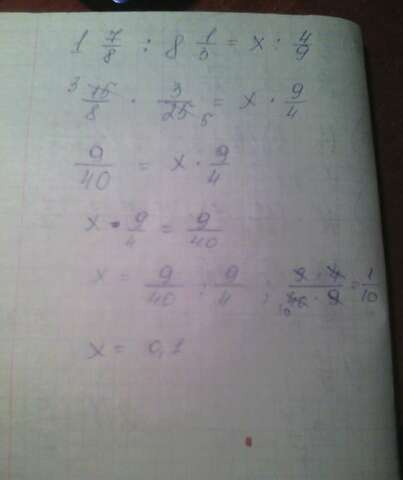 1 7/8 : 8 1/3 = x : 4/9
3 15/8 · 3/25 5 = x · 9/4
9/40 = x · 9/4
x · 9/4 = 9/40
x = 9/40 : 9/4 ; 9 · 4/40 · 9 10 = 1/10
x = 0,1